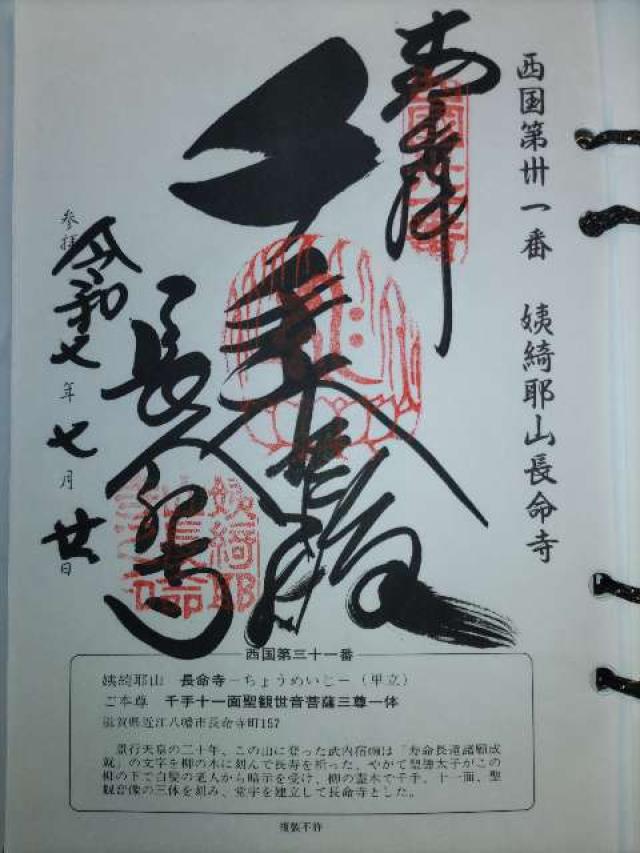 西国第卅一番　姨綺耶山長命寺
奉拝
千手大悲殿
長命寺
参拝
令和七年七月廿日
姨綺耶
西国第三十一番
姨綺耶山　長命寺－ちょうめいじ－（単立）
ご本尊　千手十一面聖観世音菩薩三尊一体
滋賀県近江八幡市長命寺町157
景行天皇の二十年、この山に登った武内宿禰は「寿命長遠諸願成
就」の文字を柳の木に刻んで長寿を祈った、やがて聖徳太子がこの
柳の下で白髪の老人から暗示を受け、柳の霊木で千手、十一面、聖
観音像の三体を刻み、堂宇を建立して長命寺とした。
複製不許